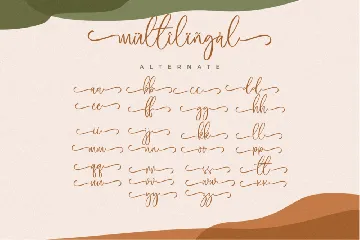 multilingal
ALTERNATE
aa bb cc dd
ee ff gg hh
ii jj kk ll
mm nn oo pp
qq rr ss tt
uu vv ww xx
yy zz